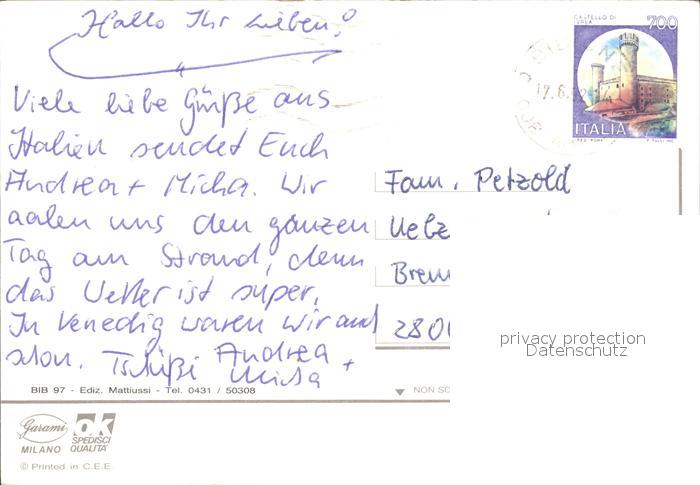 Hallo Ihr Lieben!
Viele liebe Grüße aus
Italien sendet Euch
Andrea + Micha. Wir
aalen uns den ganzen
Tag am Strand, denn
das Wetter ist super.
In Venedig waren wir auch
schon. Tschüßi Andrea +
Micha
CASTELLO DI
IVREA
700
ITALIA
17.6.92
Fam. Petzold
Uelz
Brem
280
privacy protection
Datenschutz
BIB 97 - Ediz. Mattiussi - Tel. 0431 / 50308
NON SC
Garami
MILANO
ok
SPEDISCI
QUALITA'
© Printed in C.E.E.